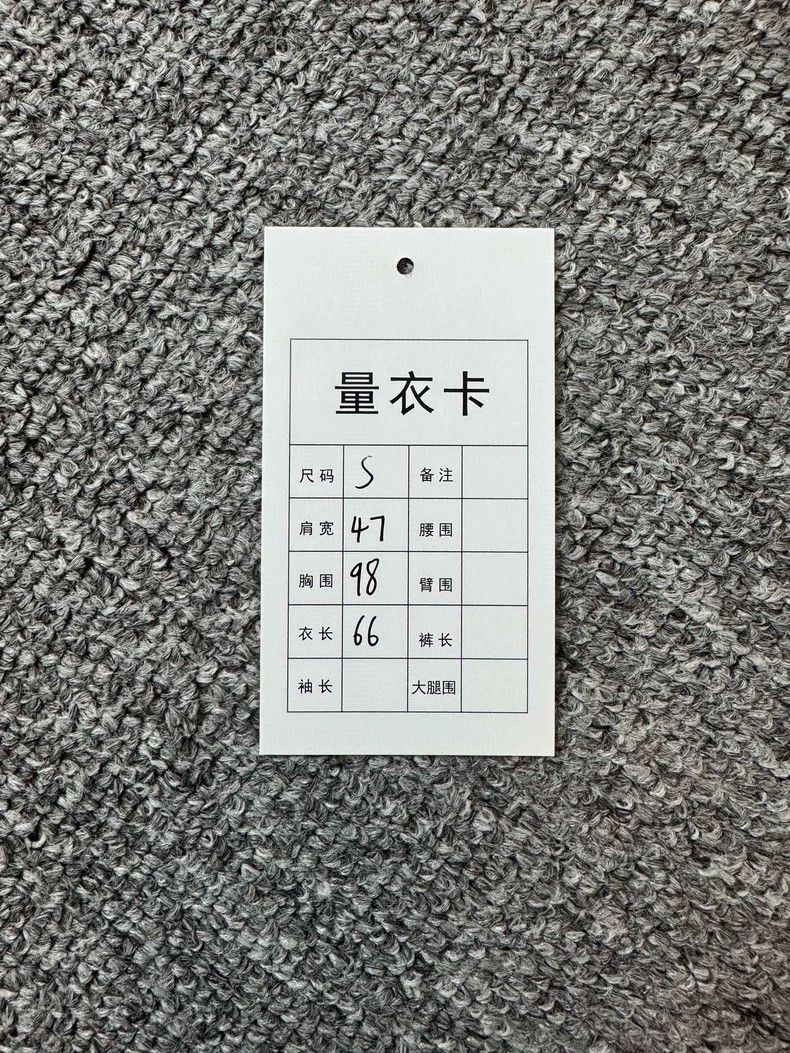 量衣卡
尺码 S 备注
肩宽 47 腰围
胸围 98 臂围
衣长 66 裤长
袖长 大腿围